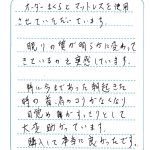 オーダーまくらとマットレスを使用
させていただいています。
眠りの質が明らかに変わって
きているのを実感しています。
特に今まであった朝起きた
時の首、肩のコリがなくなり
目覚め善がすっきりとして
大変助かっています。
購入して本当に良かったです。